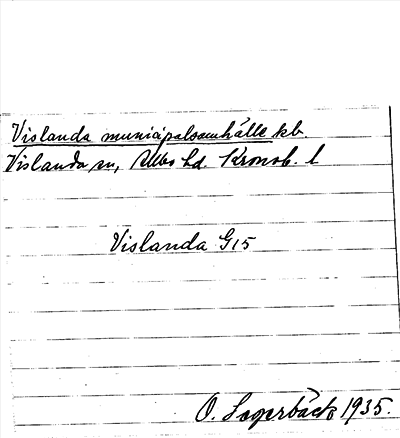 Vislanda municipalsamhälle kb.
Vislanda sn, Allbo hd. Kronob. l
Vislanda G15
O. Lagerbäck 1935.